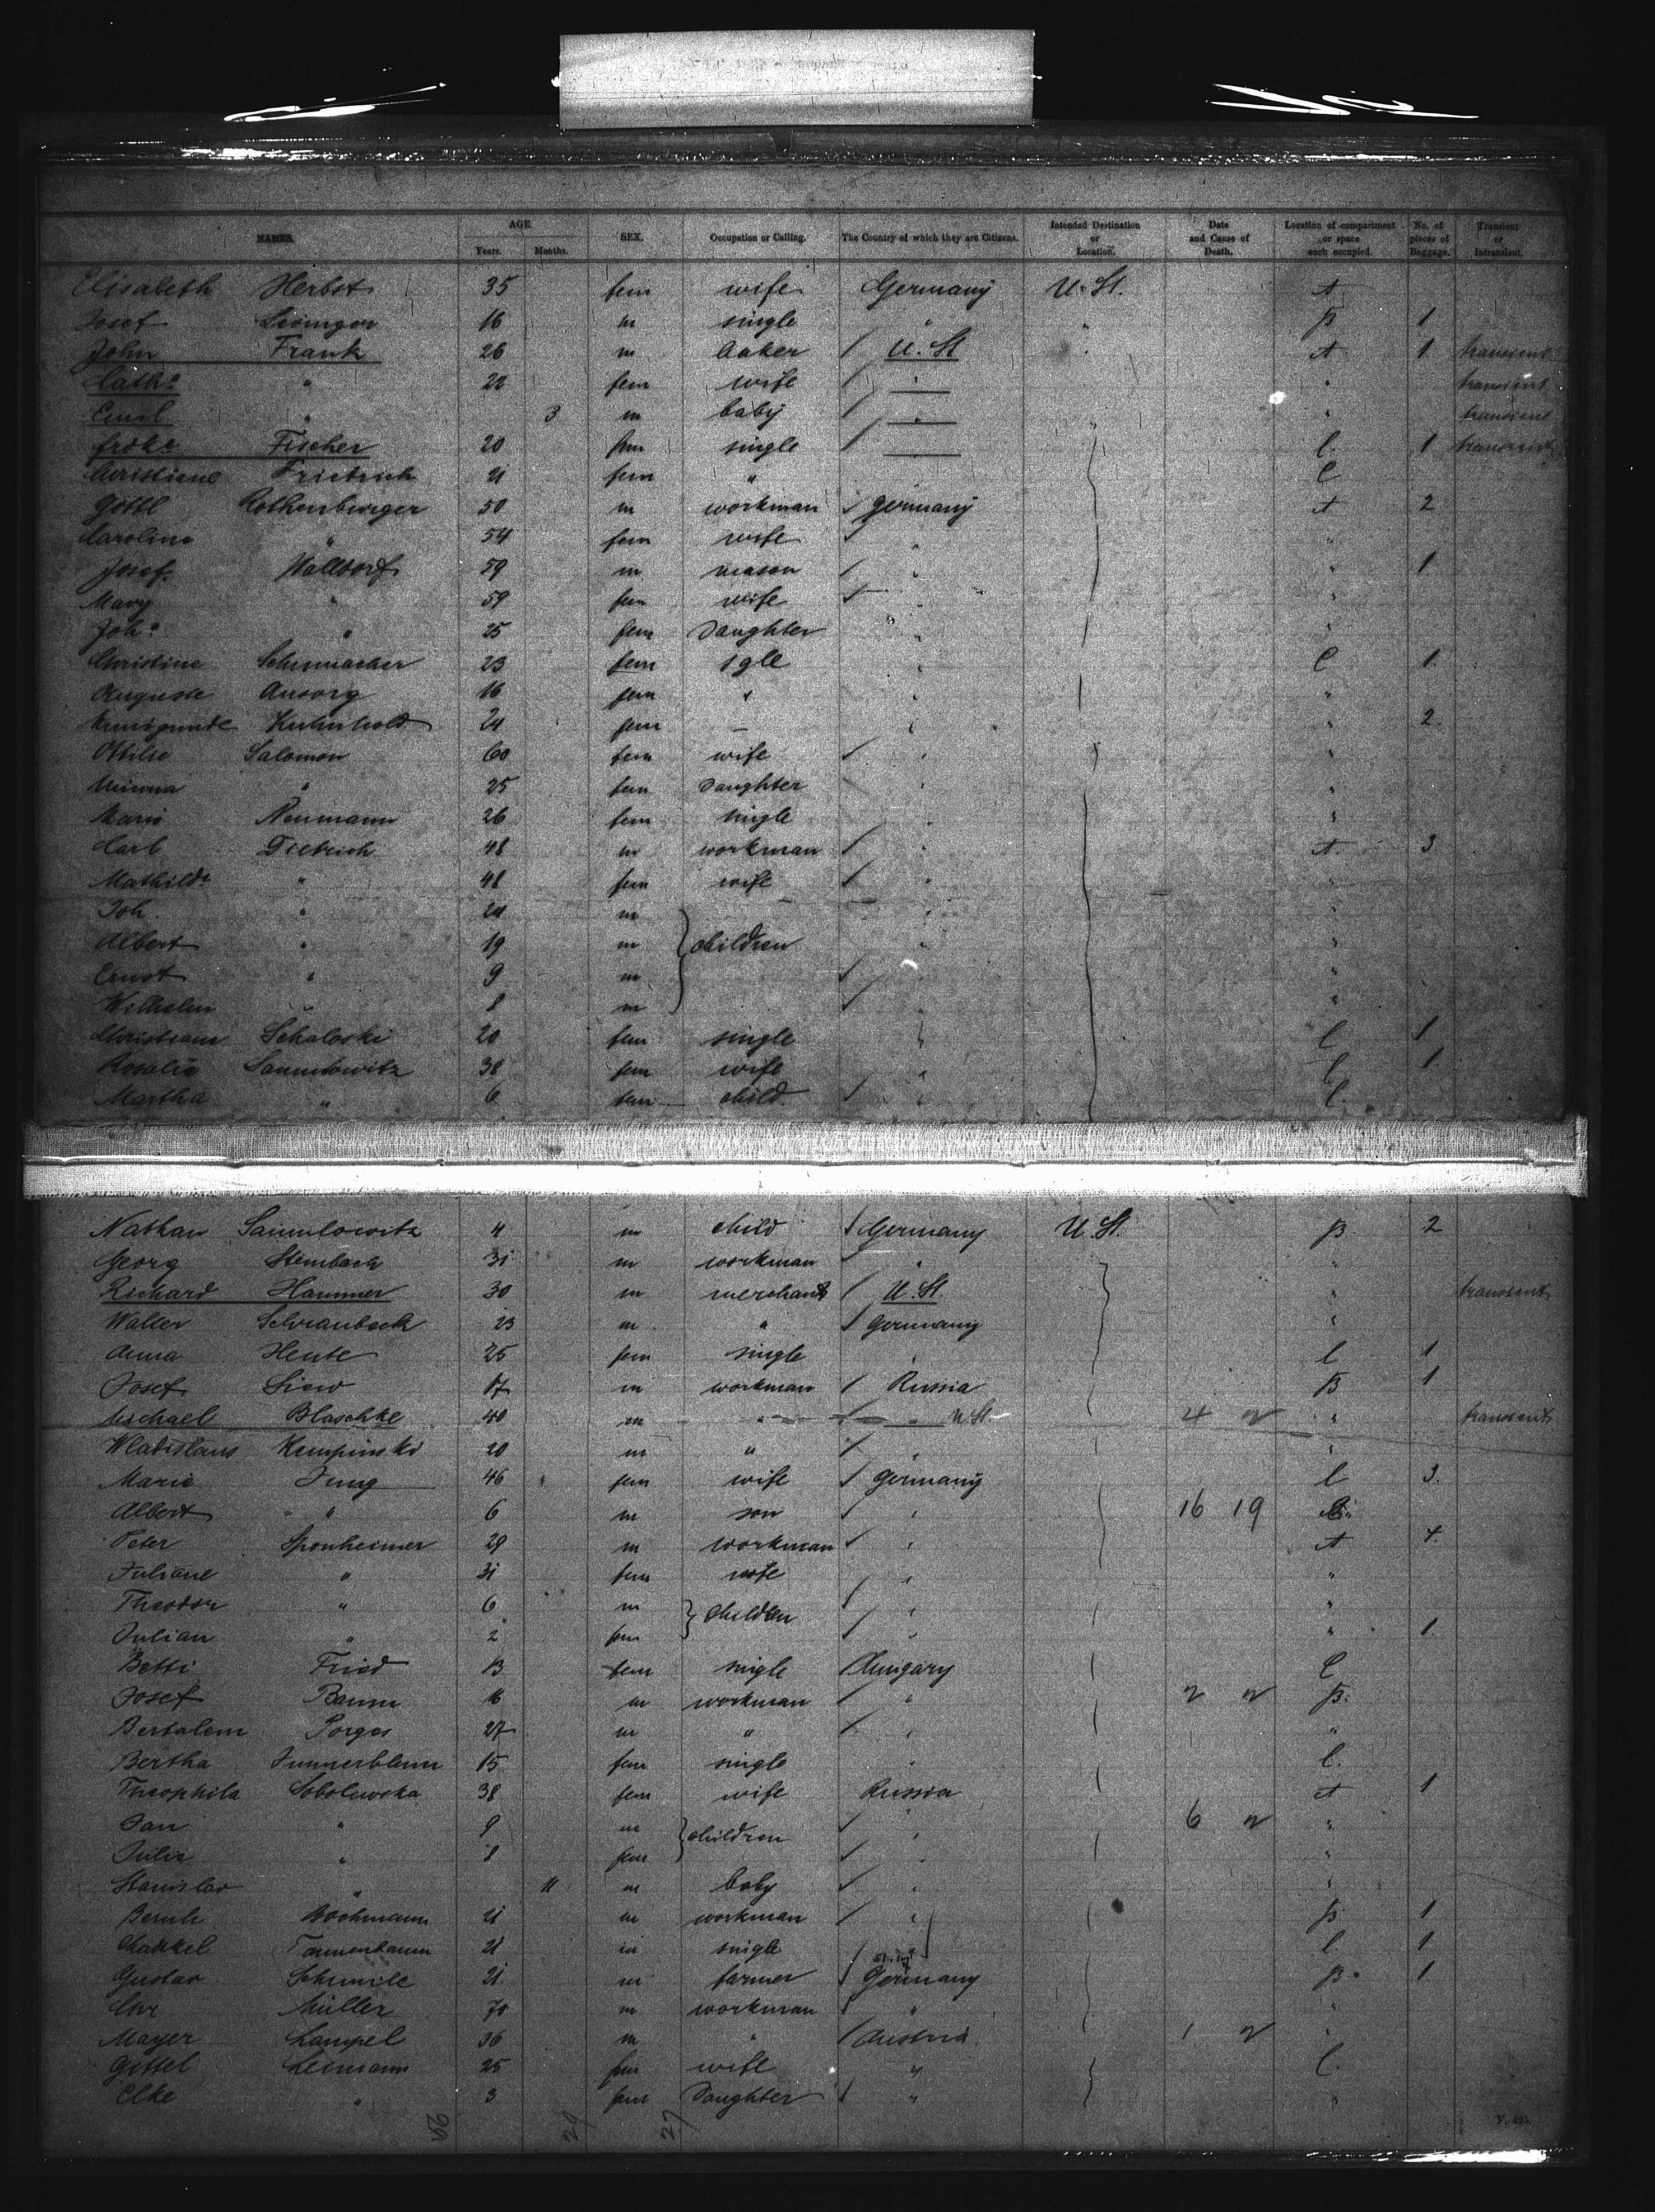 NAMES. AGE. Years. Months. SEX. Occupation or Calling. The Country of which they are Citizens. Intended Destination or Location. Date and Cause of Death. Location of compartment or space each occupied. No. of pieces of Baggage. Transient or Intransient.
Elisabeth Herbst 35 fem wife Germany U. St. A
Josef 16 m single " " B 1
John Frank 26 m baker / U. St " A 1 transient
Cath.e " 22 fem wife / " " transient
Emil " 3 m baby / " " " transient
Frdke Fischer 20 fem single / C. 1 transient
Christiane Friedrich 21 fem " C
Gottl Rothenburger 50 m workman ✓ Germany A 2
Caroline " 54 fem wife ✓ " "
Josef Walldorf 59 m mason / " " 1
Mary " 59 fem wife ✓ " "
Joha " 25 fem Daughter " "
Christine Schumacher 23 fem sgle " C 1
Auguste Ansorg 16 fem " " "
Kunigunde Kuhnhold 24 fem — " " 2
Ottilie Salomon 60 fem wife ✓ " "
Minna " 25 fem Daughter " "
Marie Neumann 26 fem single " "
Carl Dietrich 48 m workman / " A 3
Mathilde " 48 fem wife / " "
Joh. " 24 m " "
Albert " 19 m } children " "
Ernst " 9 m ✓ "
Wilhelm " 8 m ✓ "
Christiane Schaloski 20 fem single " C 1
Rosalie Samulowitz 38 fem wife " C 1
Martha " 6 fem child / " C.
Nathan Samulowitz 4 m child / Germany U. St. B 2
Georg Steinbach 31 m workman ✓ " "
Richard Hammer 30 m merchant / U. St. " transient
Walter Schwanbeck 23 m " / Germany "
Anna Hente 25 fem single " C 1
Josef 17 m workman / Russia B 1
Michael Blaschke 40 m " / " U. St. 4 "  transient
Wladislaus Kempinski 20 m " / " "
Marie Jung 46 fem wife / Germany C 3.
Albert " 6 m son ✓ " 16 19
Peter Sponheimer 29 m workman ✓ " A 4.
Juliane " 31 fem wife " "
Theodor " 6 m } children / "
Julian " 2 fem / " " 1.
Betti Fried 13 fem single Hungary C
Josef Baum 16 m workman / " B.
Bertalem 27 m " / " "
Bertha 15 fem single " C.
Theophila Sobolewska 38 fem wife Russia A 1
Jan " 9 m } children ✓ " 6 "
Julie " 8 fem ✓ " "
Stanislav " 11 m baby ✓ " "
Bochmann 21 m workman / " B 1
Tannenbaum 21 m single / C. 1
Gustav 21 m farmer / Germany B. 1
Chr Müller 70 m workman / " "
Mayer Lampel 36 m " / Austria 1 "
Gittel Leimann 25 fem wife " C.
Elke " 3 fem Daughter / " "
56 29 27
F. 425.